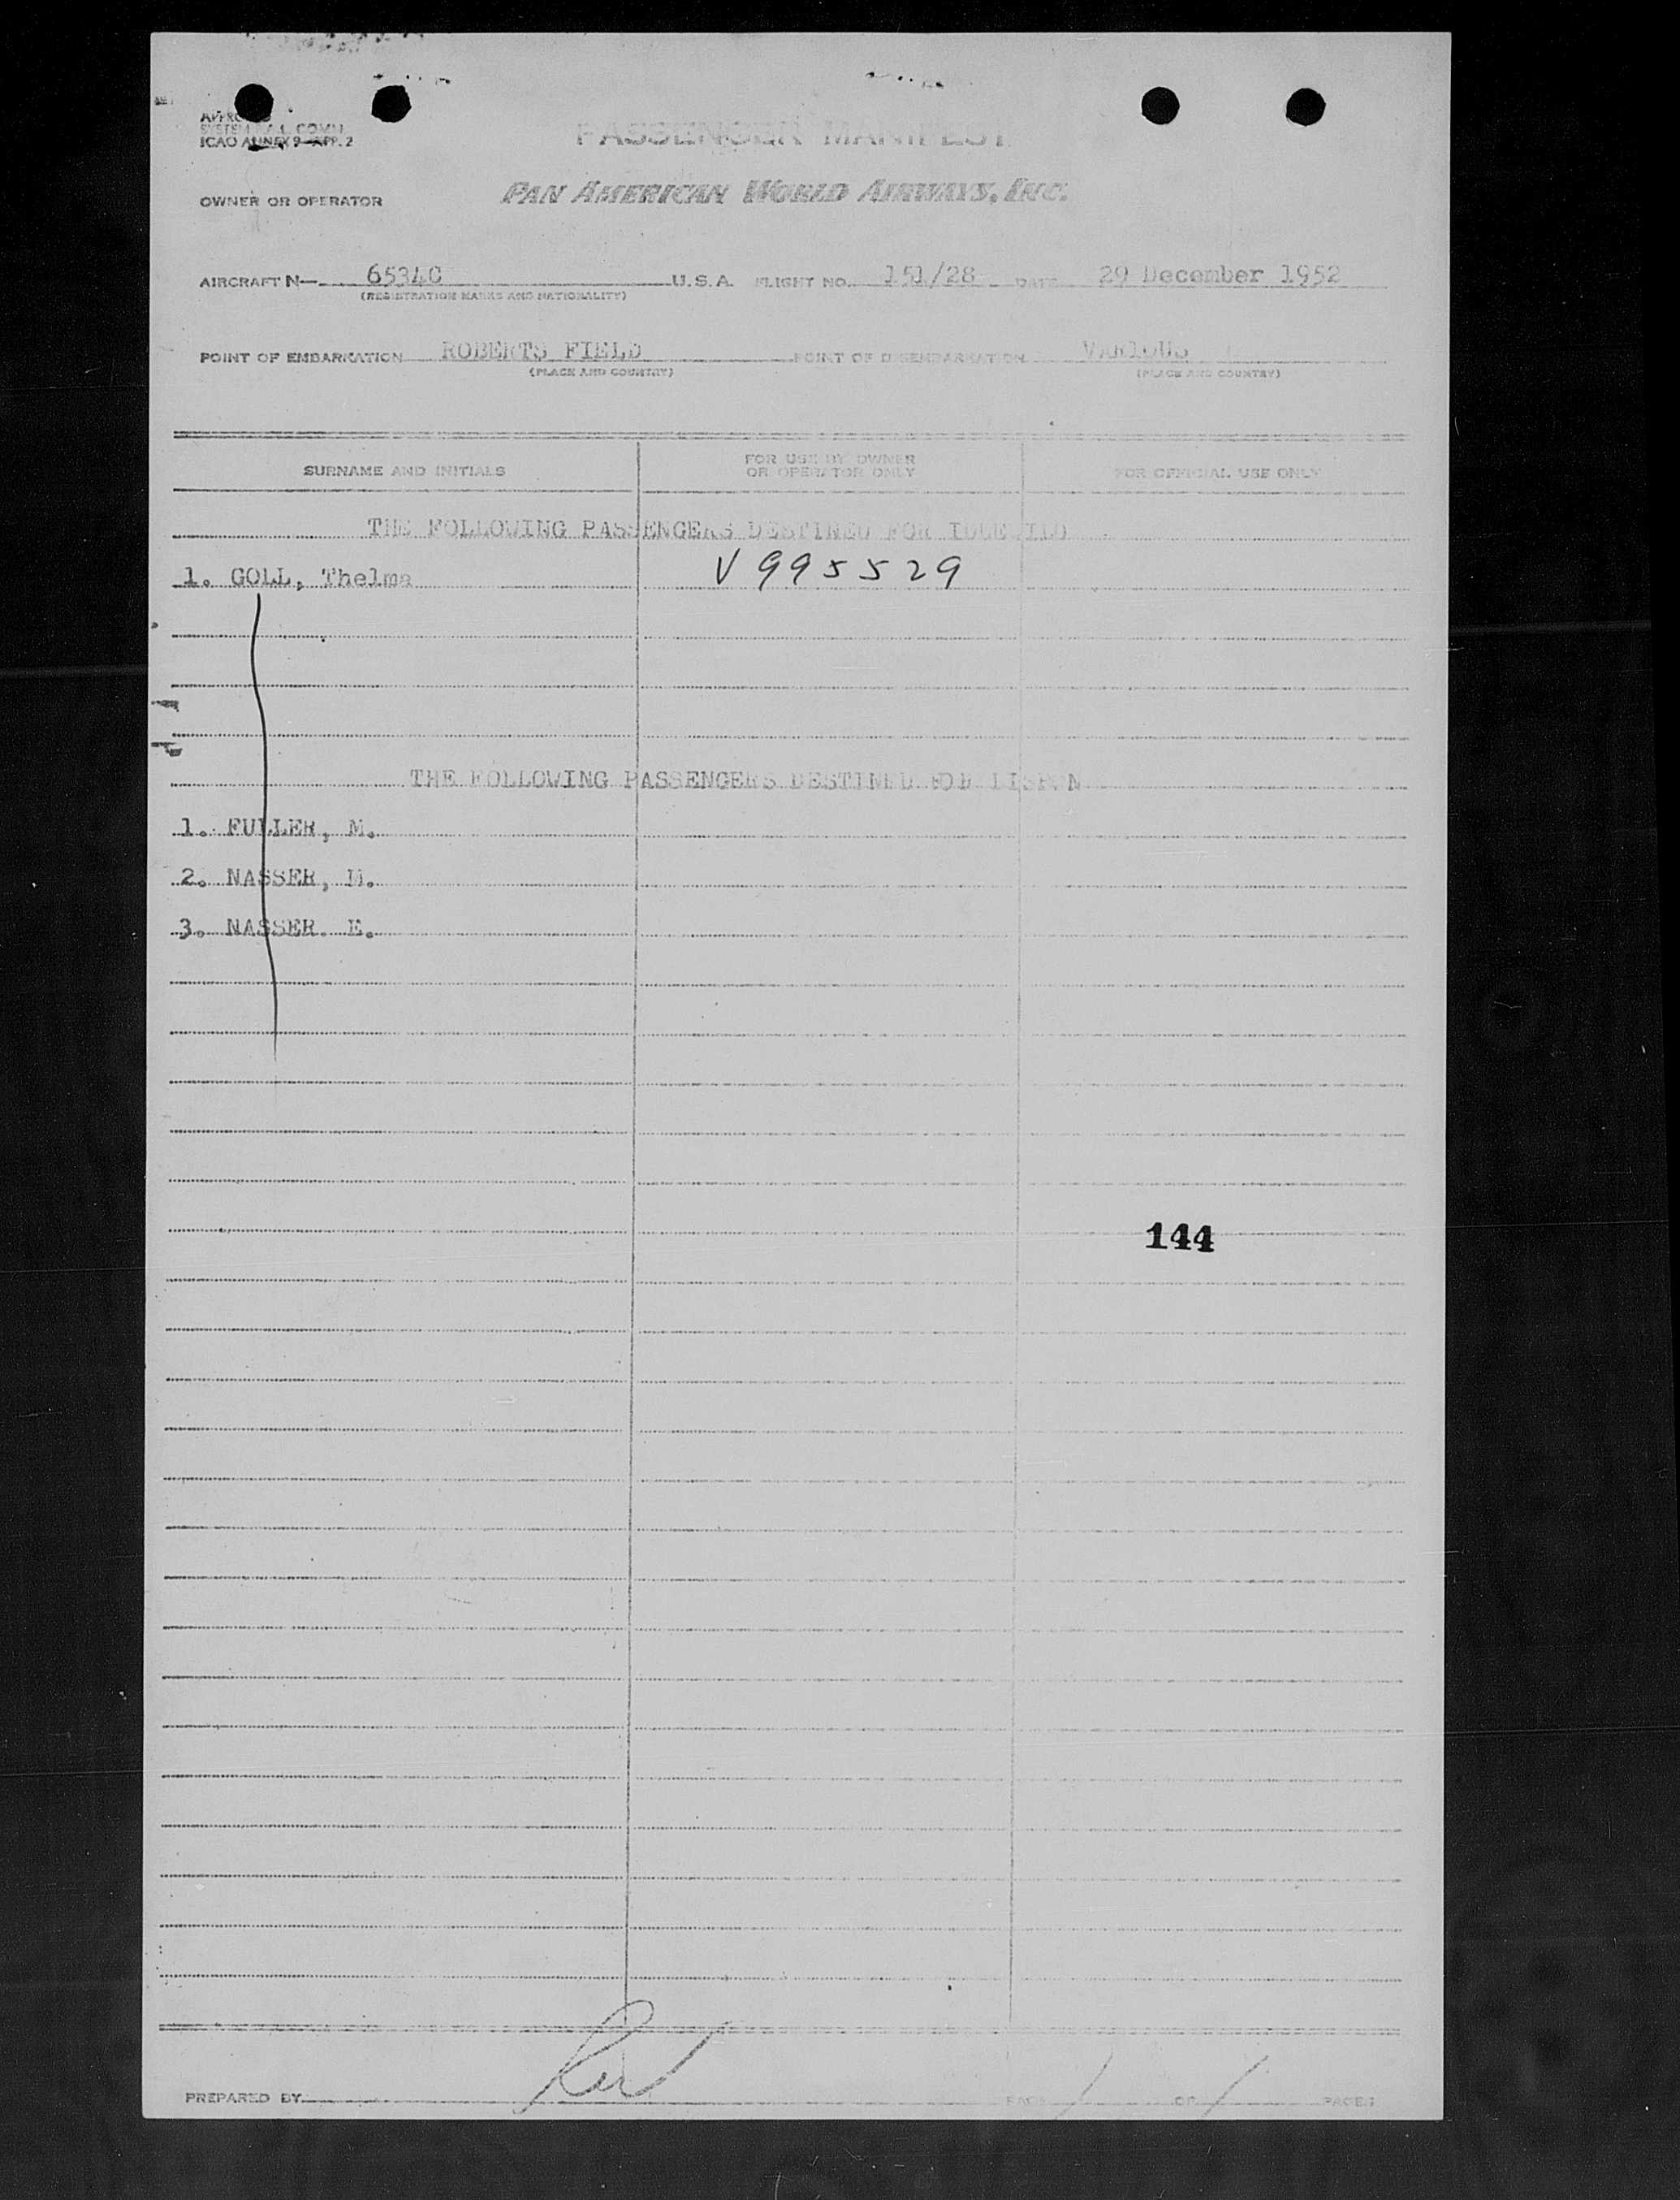 APPROVED
SYSTEM R.A.L. COMM.
ICAO ANNEX 9—APP. 2
PASSENGER MANIFEST
OWNER OR OPERATOR PAN AMERICAN WORLD AIRWAYS, INC.
AIRCRAFT N— 65340 U. S. A. FLIGHT NO. 151/28 DATE 29 December 1952
(REGISTRATION MARKS AND NATIONALITY)
POINT OF EMBARKATION ROBERTS FIELD POINT OF DISEMBARKATION VARIOUS
(PLACE AND COUNTRY) (PLACE AND COUNTRY)
SURNAME AND INITIALS FOR USE BY OWNER OR OPERATOR ONLY FOR OFFICIAL USE ONLY
THE FOLLOWING PASSENGERS DESTINED FOR IDLEWILD
1. GOLL, Thelma V 995529
THE FOLLOWING PASSENGERS DESTINED FOR LISBON
1. FULLER, M.
2. NASSER, M.
3. NASSER. E.
144
PREPARED BY PAGE 1 OF 1 PAGES